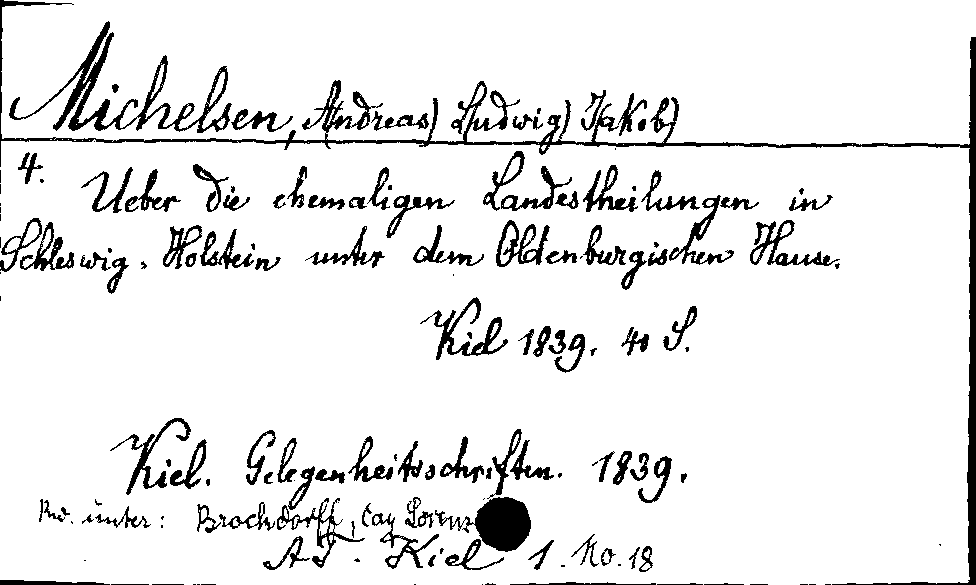 Michelsen, A(ndreas) L(udwig) J(akob)
4.
Ueber die ehemaligen Landestheilungen in
Schleswig-Holstein unter dem Oldenburgischen Hause.
Kiel 1839. 40 S.
Kiel. Gelegenheitsschriften. 1839.
unter: Brochdorff, Cay Lorenz
AT. Kiel 1. No. 18